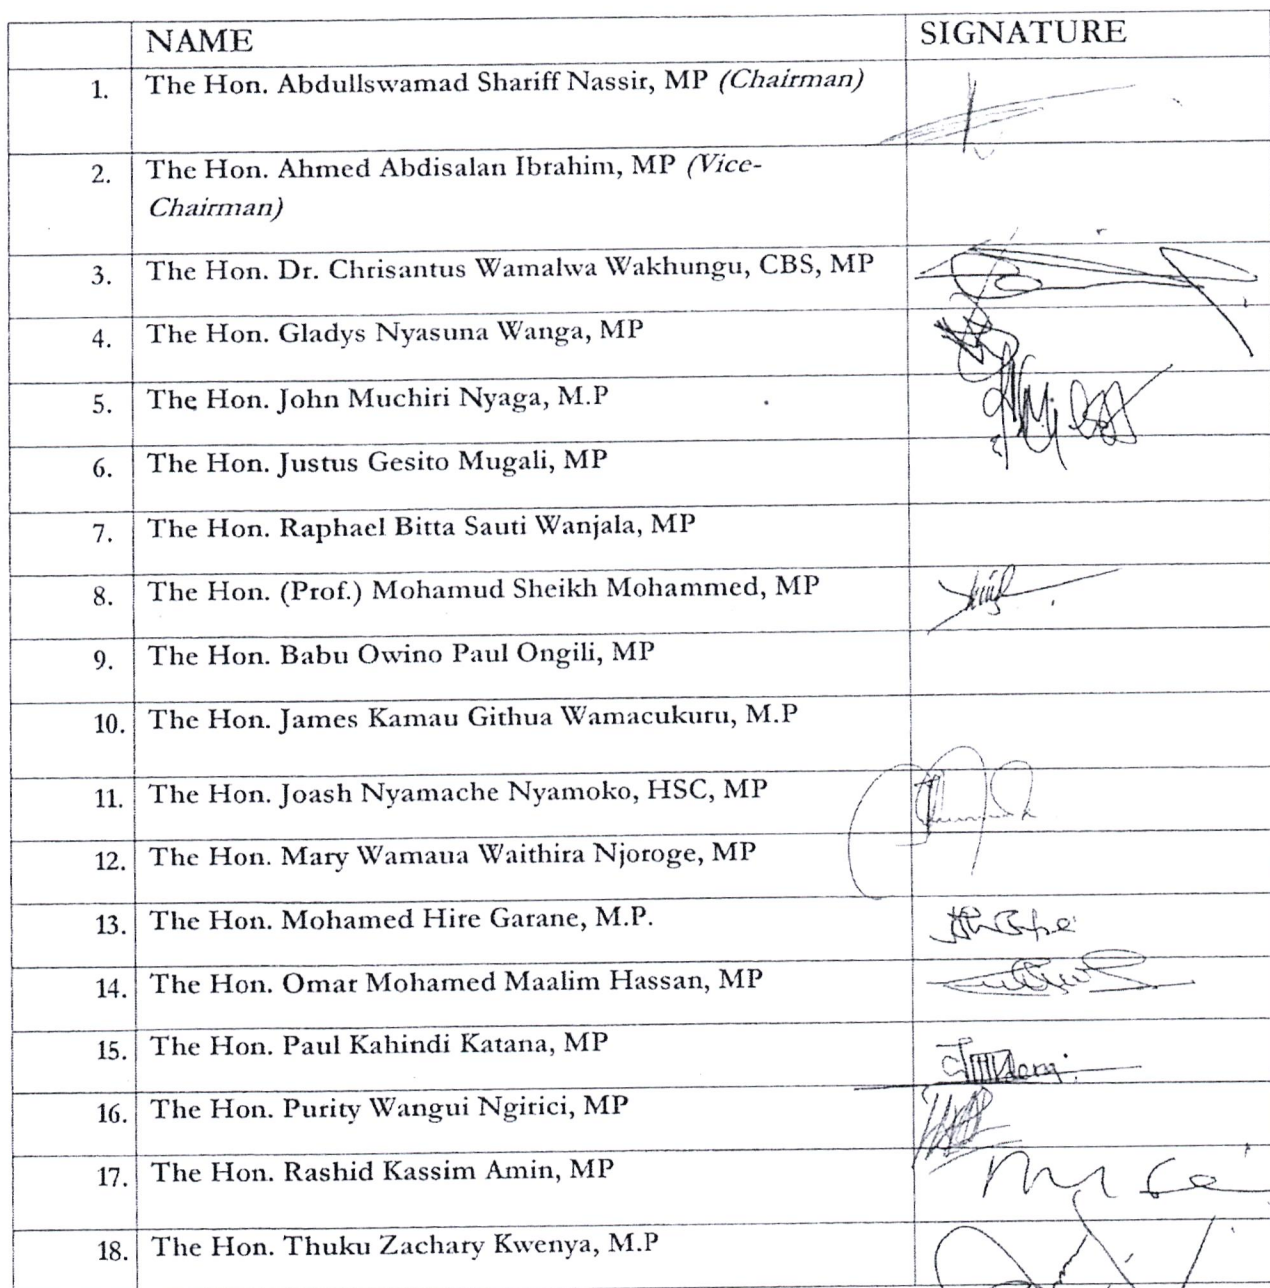 NAME SIGNATURE
1. The Hon. Abdullswamad Shariff Nassir, MP (Chairman)
2. The Hon. Ahmed Abdisalan Ibrahim, MP (Vice-
Chairman)
3. The Hon. Dr. Chrisantus Wamalwa Wakhungu, CBS, MP
4. The Hon. Gladys Nyasuna Wanga, MP
5. The Hon. John Muchiri Nyaga, M.P
6. The Hon. Justus Gesito Mugali, MP
7. The Hon. Raphael Bitta Sauti Wanjala, MP
8. The Hon. (Prof.) Mohamud Sheikh Mohammed, MP
9. The Hon. Babu Owino Paul Ongili, MP
10. The Hon. James Kamau Githua Wamacukuru, M.P
11. The Hon. Joash Nyamache Nyamoko, HSC, MP
12. The Hon. Mary Wamaua Waithira Njoroge, MP
13. The Hon. Mohamed Hire Garane, M.P.
14. The Hon. Omar Mohamed Maalim Hassan, MP
15. The Hon. Paul Kahindi Katana, MP
16. The Hon. Purity Wangui Ngirici, MP
17. The Hon. Rashid Kassim Amin, MP
18. The Hon. Thuku Zachary Kwenya, M.P